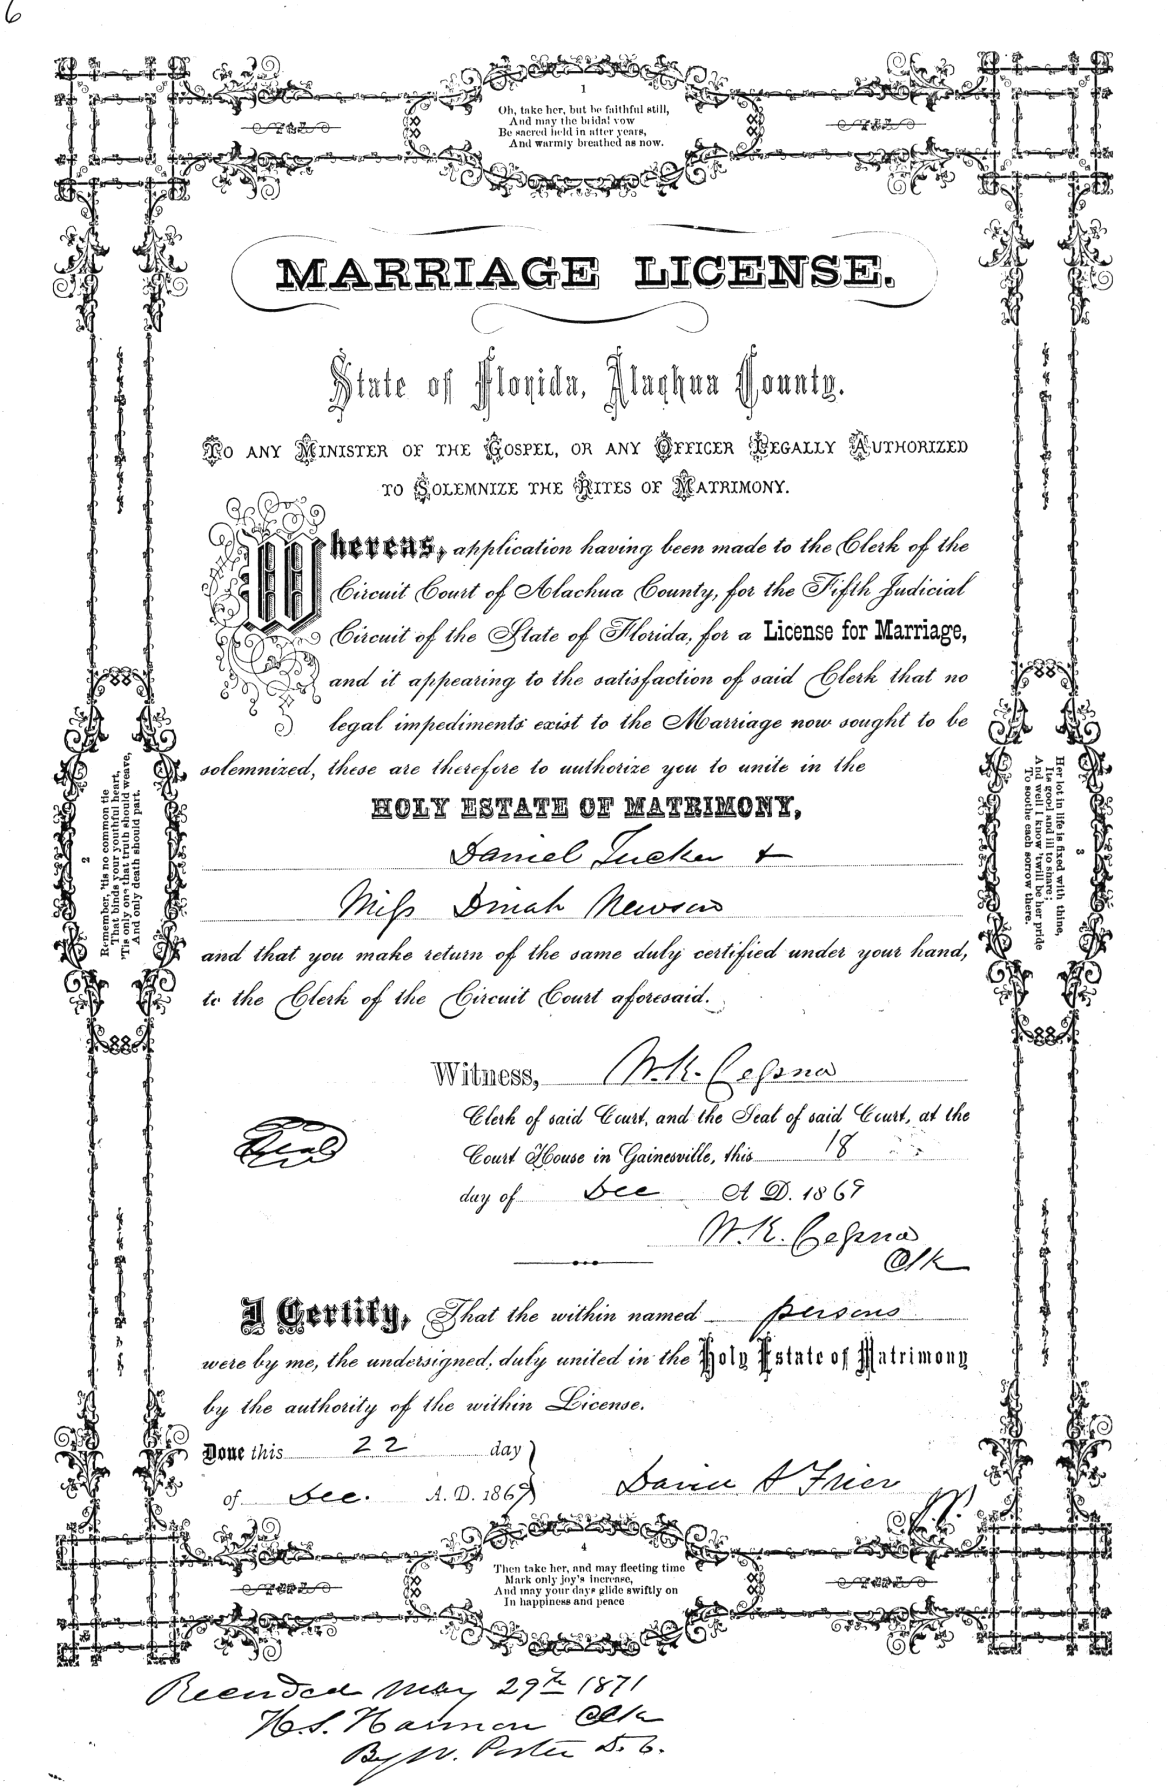 6
1
Oh, take her, but be faithful still,
And may the bridal vow
Be sacred held in after years,
And warmly breathed as now.
MARRIAGE LICENSE.
State of Florida, Alachua County.
TO ANY MINISTER OF THE GOSPEL, OR ANY OFFICER LEGALLY AUTHORIZED
TO SOLEMNIZE THE RITES OF MATRIMONY.
Whereas, application having been made to the Clerk of the
Circuit Court of Alachua County, for the Fifth Judicial
Circuit of the State of Florida, for a License for Marriage,
and it appearing to the satisfaction of said Clerk that no
legal impediments exist to the Marriage now sought to be
solemnized, these are therefore to authorize you to unite in the
HOLY ESTATE OF MATRIMONY,
Daniel Tucker &
Miss Dinah Newson
and that you make return of the same duly certified under your hand,
to the Clerk of the Circuit Court aforesaid.
2
Remember, 'tis no common tie
That binds your youthful heart,
'Tis only one that truth should weave,
And only death should part.
3
Her lot in life is fixed with thine,
Its good and ill to share;
And well I know 'twill be her pride
To soothe each sorrow there.
Witness, W. K. Cessna
Clerk of said Court, and the Seal of said Court, at the
Seal
Court House in Gainesville, this 18
day of Dec A D. 1869
W. K. Cessna
Clk
I Certify, That the within named persons
were by me, the undersigned, duly united in the Holy Estate of Matrimony
by the authority of the within License.
Done this 22 day
of Dec. A. D. 1869
David A Frier
J.P.
4
Then take her, and may fleeting time
Mark only joy's increase,
And may your days glide swiftly on
In happiness and peace
Recorded May 29th 1871
H. S. Harmon Clk
By W. Porter D. C.